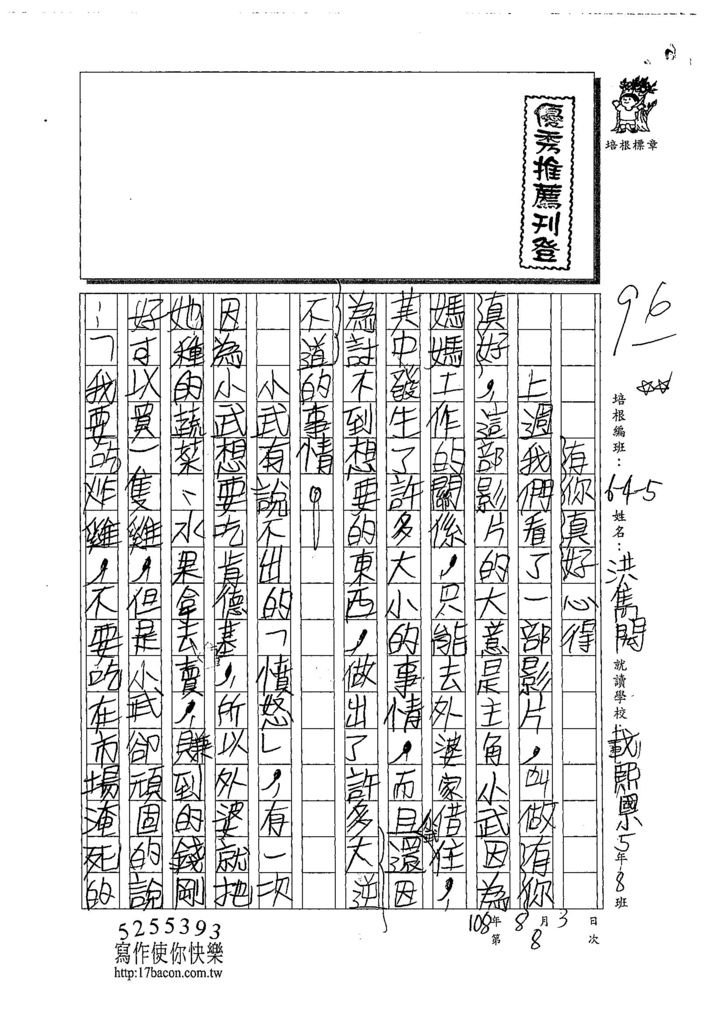 優秀推薦刊登
培根標章
96
培根編班：64-5 姓名：洪雋閎 就讀學校 載熙國小5年8班
有你真好心得
上週我們看了一部影片，叫做有你
真好，這部影片的大意是主角小武因為
媽媽工作的關係，只能去外婆家借住，
其中發生了許多大小的事情，而且還因
為討不到想要的東西，做出了許多大逆
不道的事情。
小武有說不出的「憤怒」，有一次
因為小武想要吃肯德基，所以外婆就把
她種的蔬菜、水果拿去賣，賺到的錢剛
好可以買一隻雞，但是小武卻頑固的說
：「我要吃炸雞，不要吃在市場淹死的
108年8月3日
第8次
5255393
寫作使你快樂
http:17bacon.com.tw